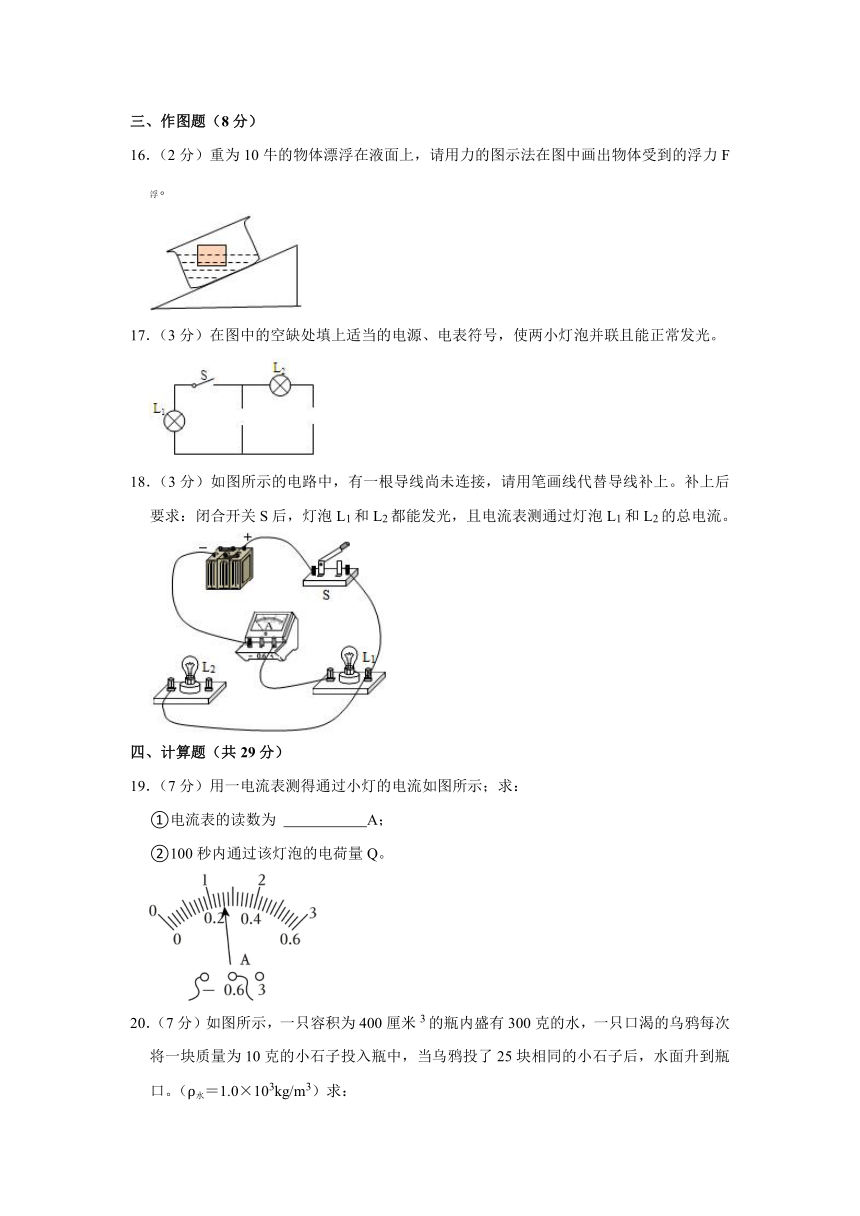 三、作图题（8 分）
16.（2 分）重为 10 牛的物体漂浮在液面上，请用力的图示法在图中画出物体受到的浮力 F
浮。
17.（3 分）在图中的空缺处填上适当的电源、电表符号，使两小灯泡并联且能正常发光。
S L2
L1
18.（3 分）如图所示的电路中，有一根导线尚未连接，请用笔画线代替导线补上。补上后
要求：闭合开关 S 后，灯泡 L1 和 L2 都能发光，且电流表测通过灯泡 L1 和 L2 的总电流。
− +
S
A
− 0.6 3
L2 L1
四、计算题（共 29 分）
19.（7 分）用一电流表测得通过小灯的电流如图所示；求：
①电流表的读数为 ___________A；
②100 秒内通过该灯泡的电荷量 Q。
1 2
0 0.2 0.4 3
0 0.6
A
− 0.6 3
20.（7 分）如图所示，一只容积为 400 厘米 3 的瓶内盛有 300 克的水，一只口渴的乌鸦每次
将一块质量为 10 克的小石子投入瓶中，当乌鸦投了 25 块相同的小石子后，水面升到瓶
口。（ρ水＝1.0×103kg/m3）求：